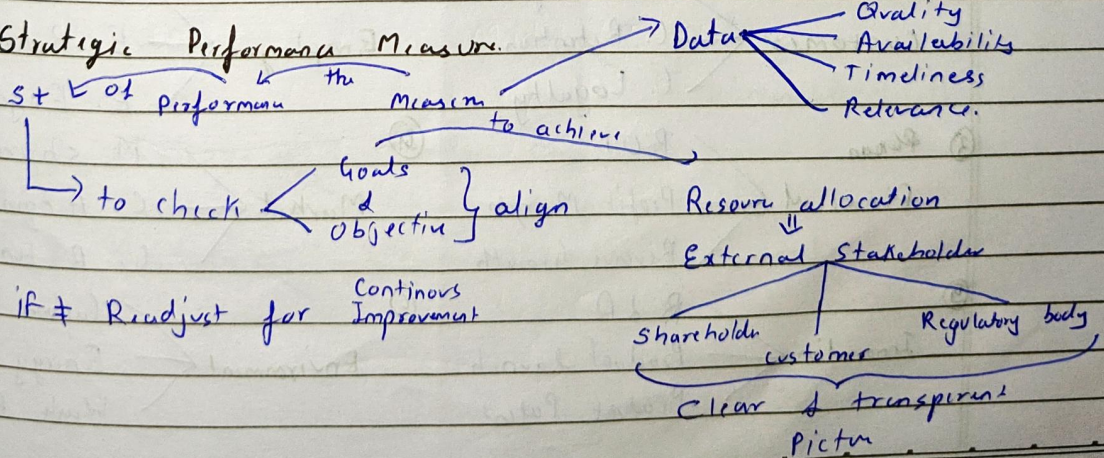 Strategic Performance Measure.
Data
Quality
Availability
Timeliness
Relevance.
St of Performance the Measure
to achieve
to check
Goals
&
Objective
align
Resource allocation
External Stakeholder
if ≠ Readjust for Continous Improvement
Shareholder
Customer
Regulatory body
Clear & transperent
Picture